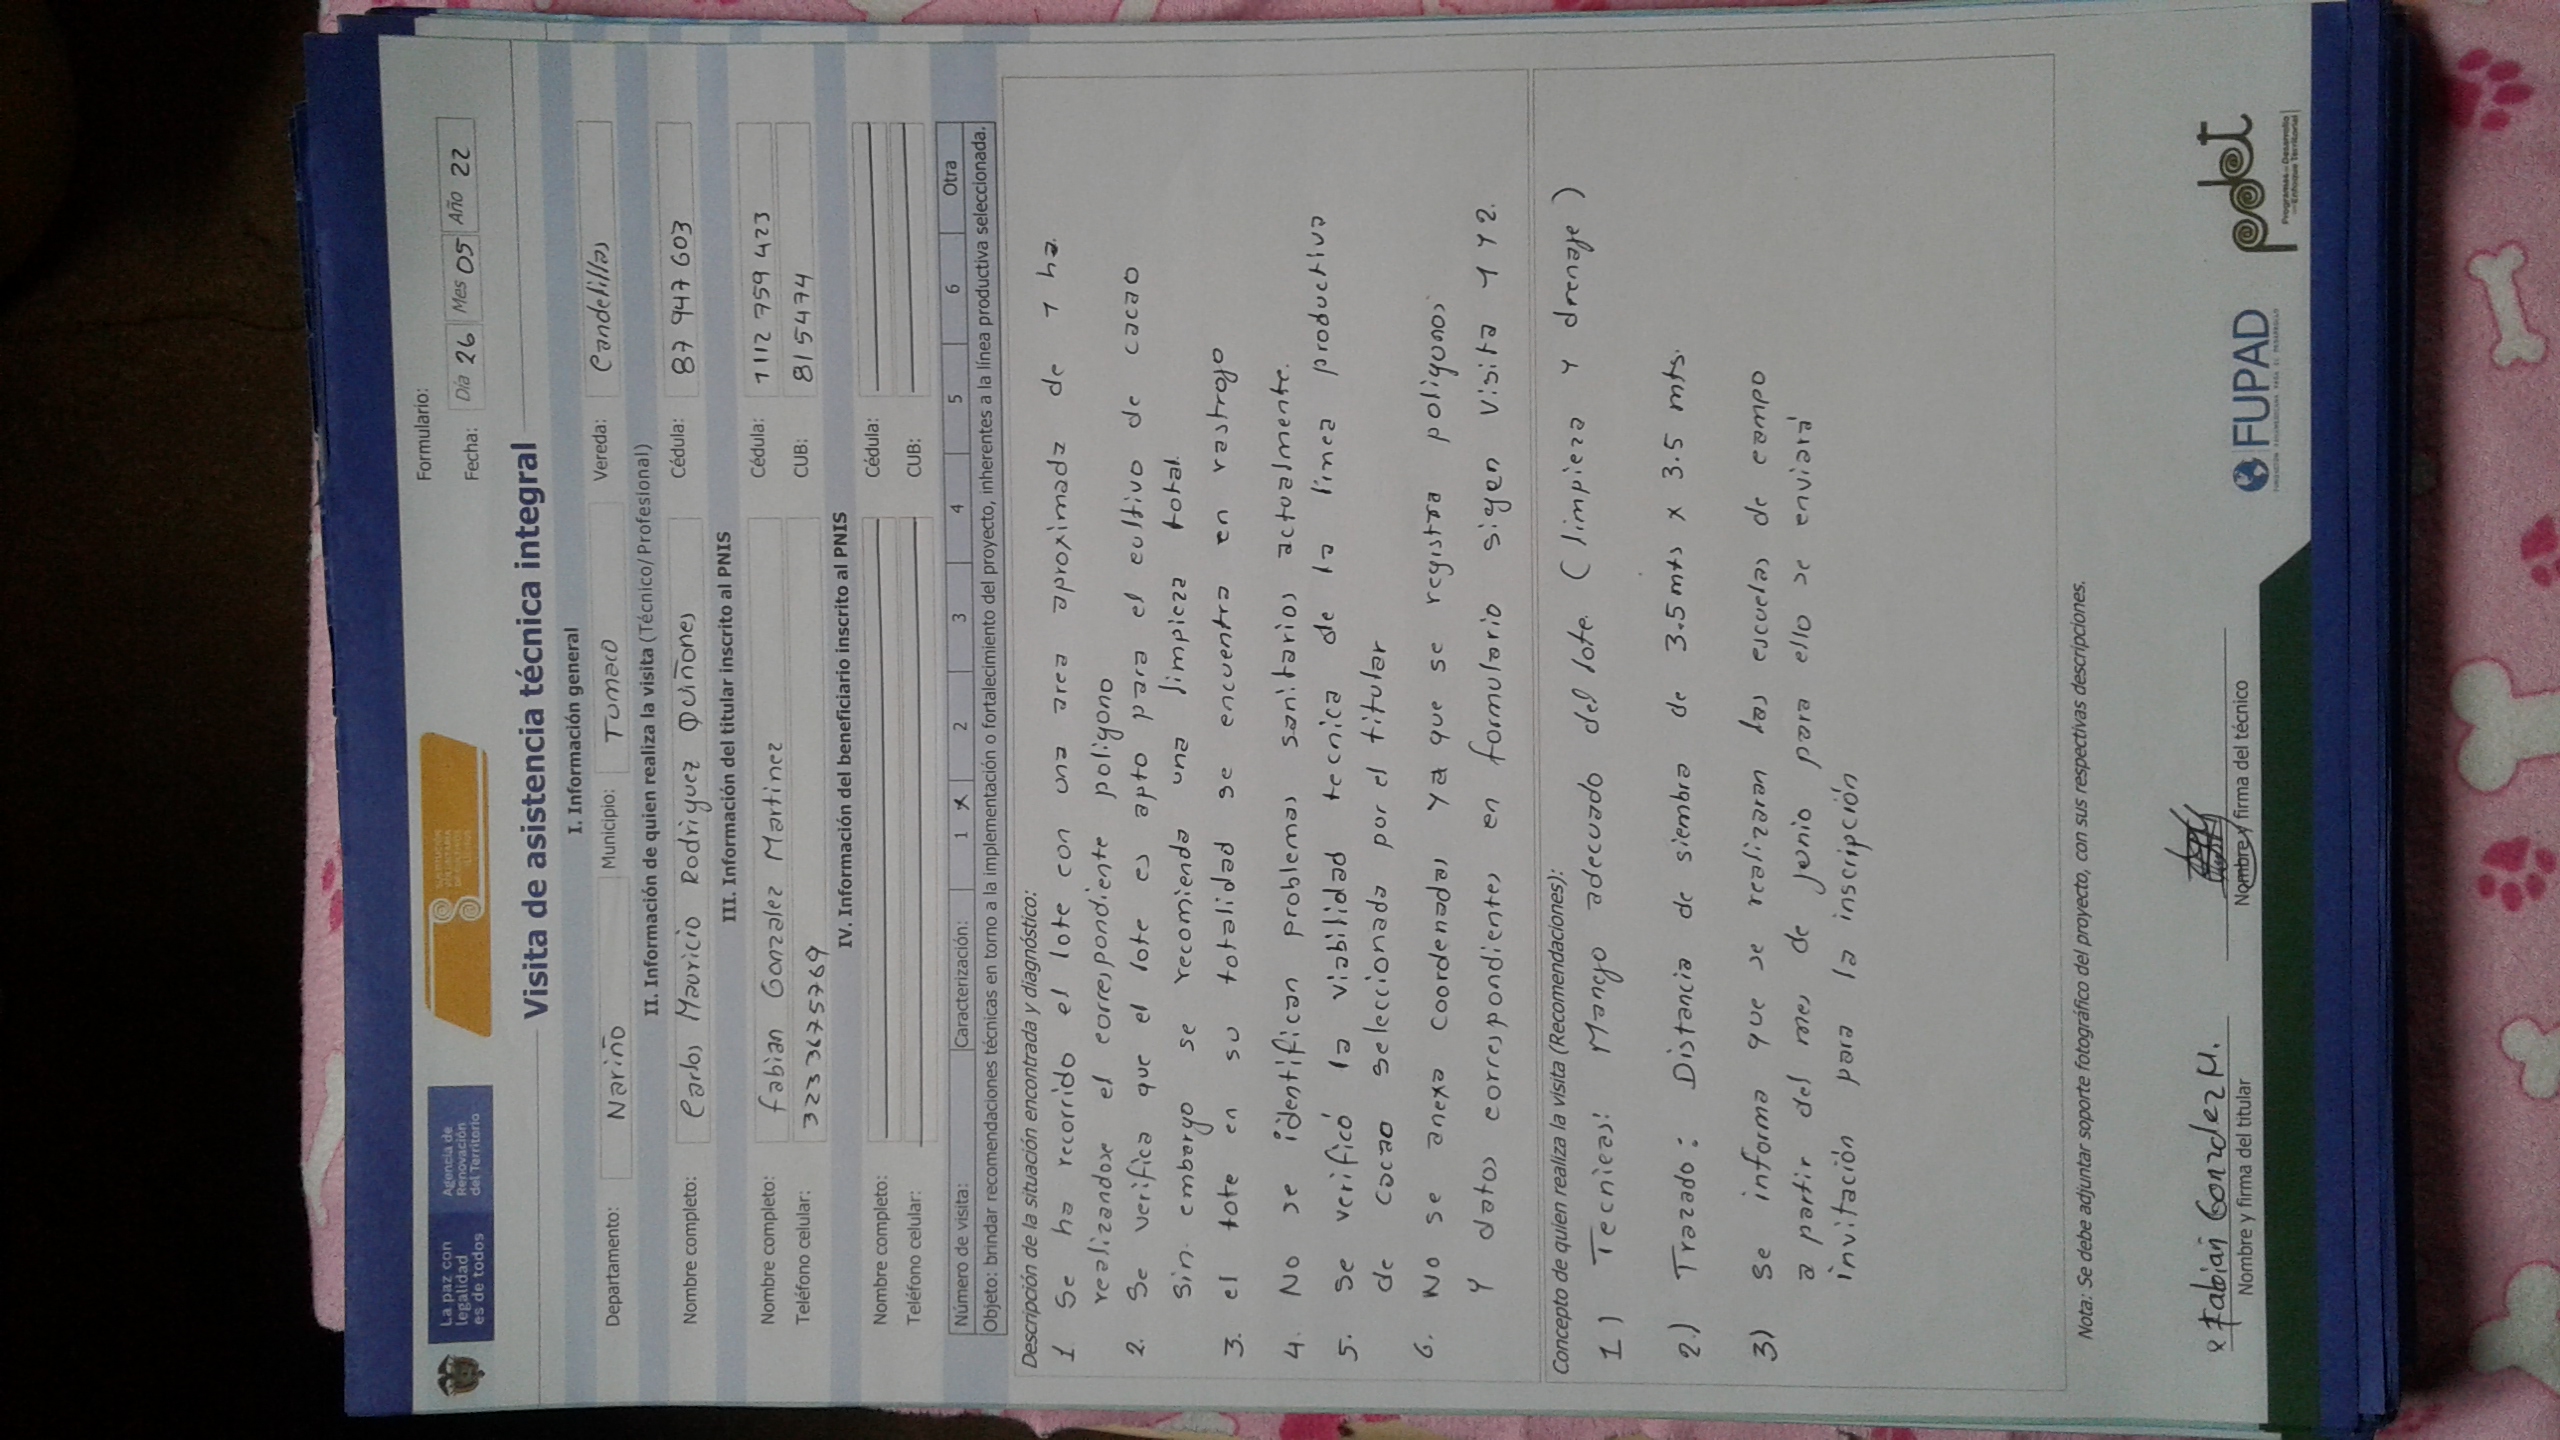 La paz con
legalidad
es de todos
Agencia de
Renovación
del Territorio
Formulario:
Fecha: Día 26 Mes 05 Año 22
Visita de asistencia técnica integral
I. Información general
Departamento: Nariño Municipio: Tumaco Vereda: Candelillas
II. Información de quien realiza la visita (Técnico/Profesional)
Nombre completo: Carlos Mauricio Rodriguez Quiñones Cédula: 87 947 603
III. Información del titular inscrito al PNIS
Nombre completo: Fabian Gonzalez Martinez Cédula: 1112 759 423
Teléfono celular: 323 3675769 CUB: 815474
IV. Información del beneficiario inscrito al PNIS
Nombre completo: Cédula:
Teléfono celular: CUB:
Número de visita: Caracterización: 1 x 2 3 4 5 6 Otra
Objeto: brindar recomendaciones técnicas en torno a la implementación o fortalecimiento del proyecto, inherentes a la línea productiva seleccionada.
Descripción de la situación encontrada y diagnóstico:
1 Se ha recorrido el lote con una area aproximada de 1 ha.
realizandose el correspondiente poligono
2. Se verifica que el lote es apto para el cultivo de cacao
sin. embargo se recomienda una limpieza total.
3. el lote en su totalidad se encuentra en rastrojo
4. No se identifican problemas sanitarios actualmente.
5. Se verificó la viabilidad tecnica de la linea productiva
de cacao seleccionada por el titular
6. No se anexa coordenadas ya que se registra poligonos
y datos correspondientes en formulario sigen visita 1 y 2.
Concepto de quien realiza la visita (Recomendaciones):
1) Tecnicas: Manejo adecuado del lote (limpieza y drenaje)
2.) Trazado: Distancia de siembra de 3.5 mts x 3.5 mts.
3) Se informa que se realizaran las escuelas de campo
a partir del mes de junio para ello se enviará
invitación para la inscripción
Nota: Se debe adjuntar soporte fotográfico del proyecto, con sus respectivas descripciones.
x Fabian Gonzalez M.
Nombre y firma del titular
Nombre y firma del técnico
FUPAD
pdet
Programas de Desarrollo
con Enfoque Territorial